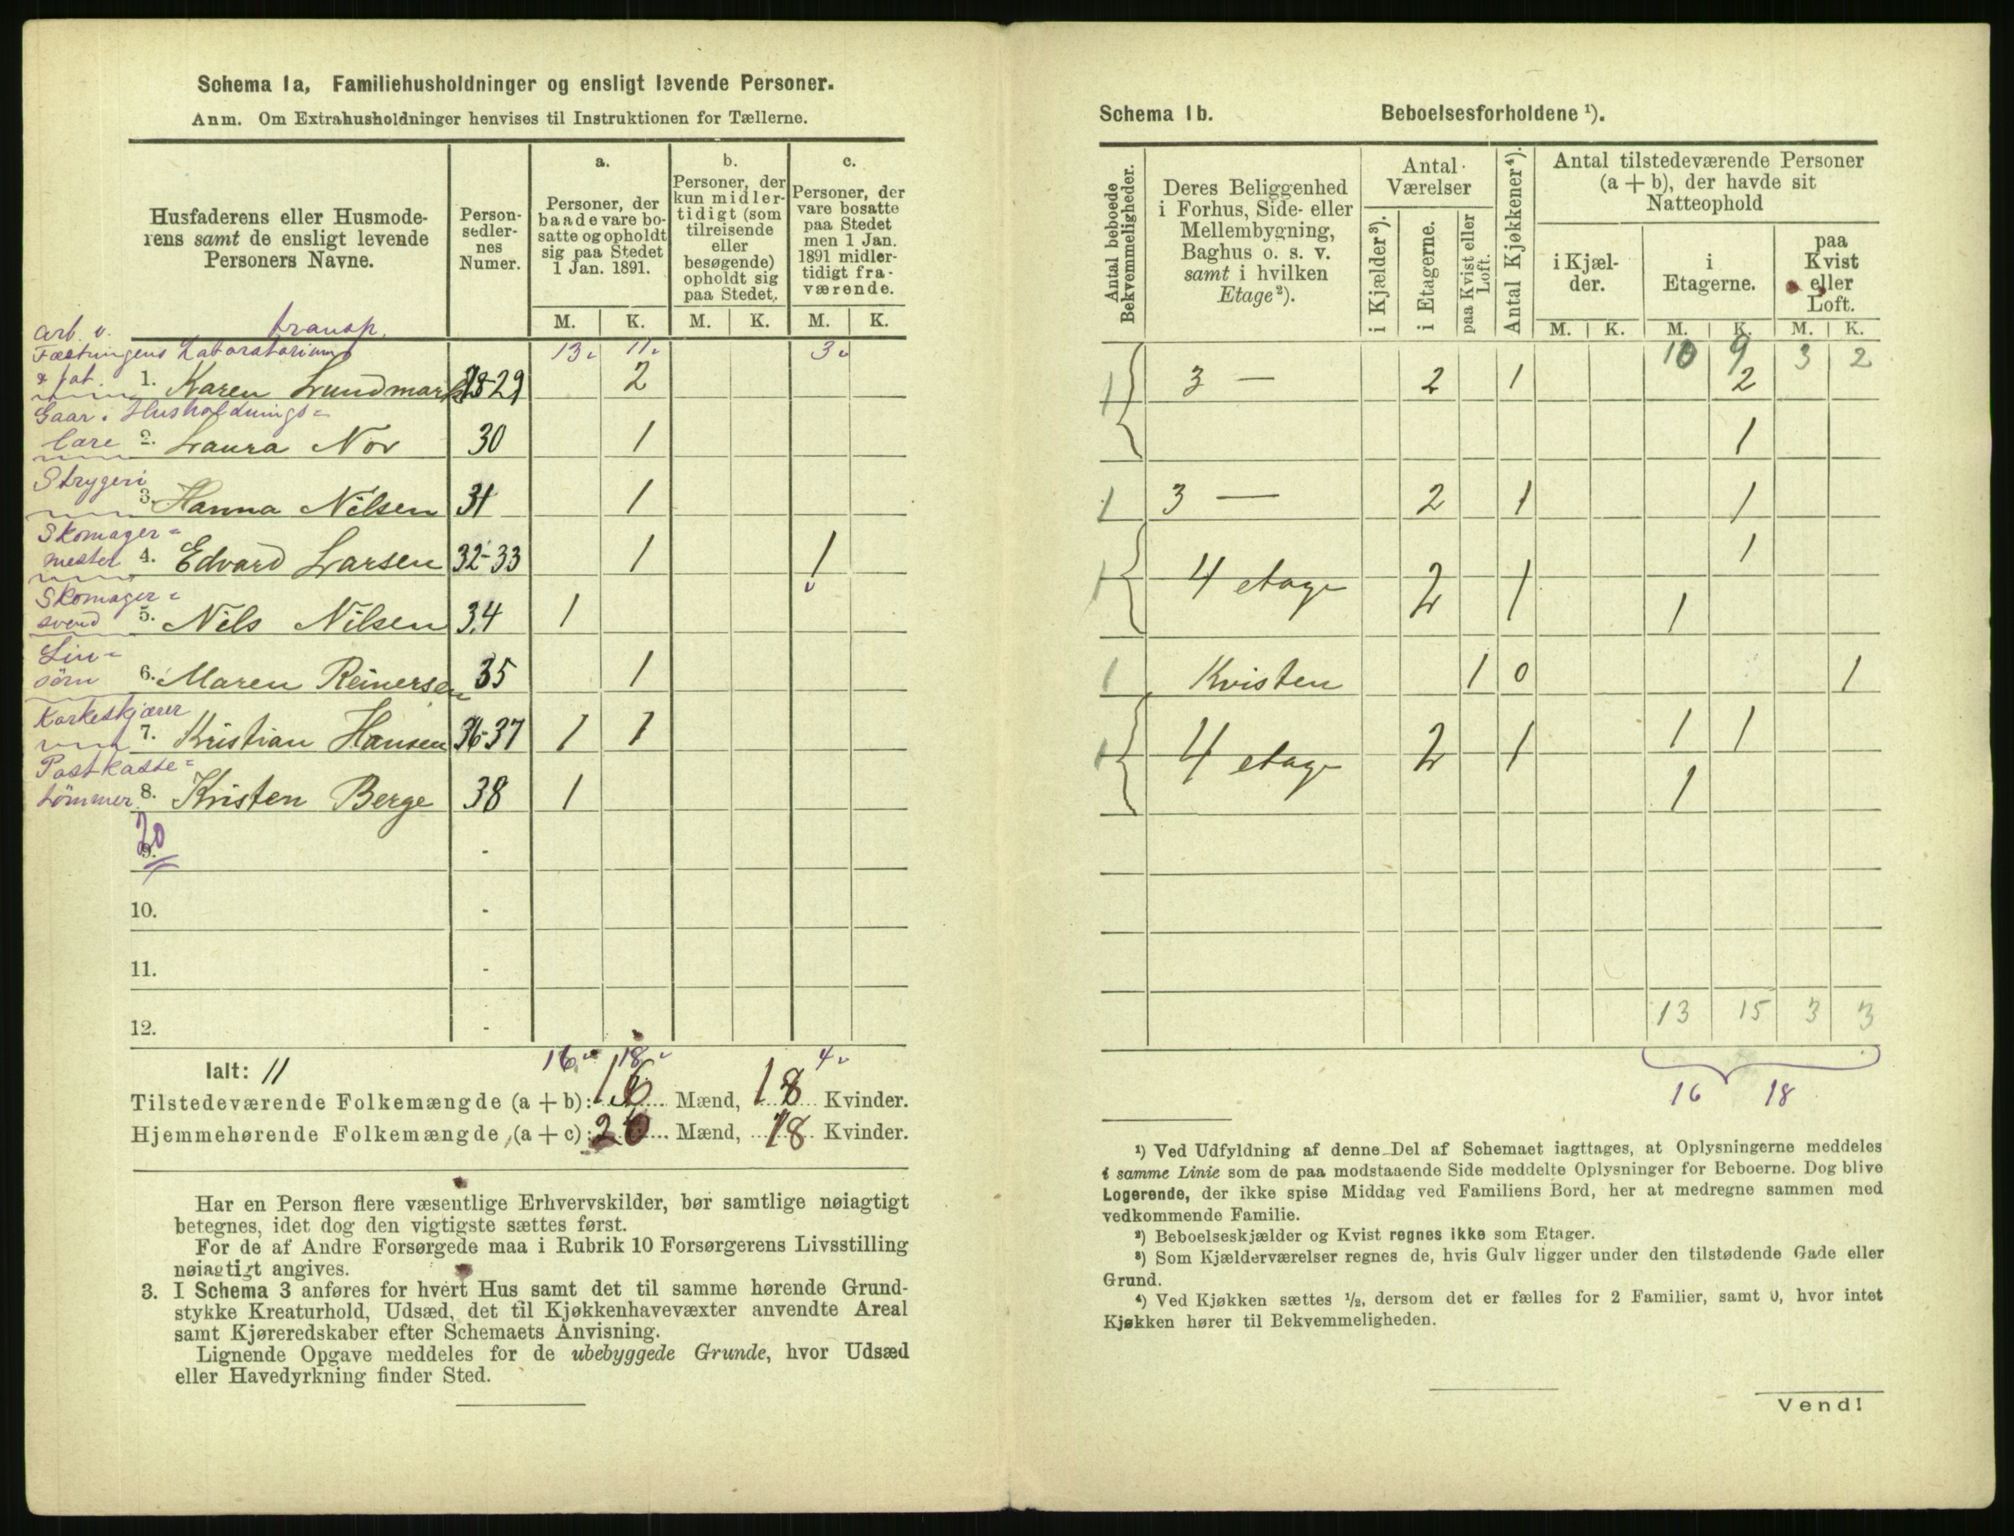 Schema 1a, Familiehusholdninger og ensligt levende Personer.
Anm. Om Extrahusholdninger henvises til Instruktionen for Tællerne.
Husfaderens eller Husmode-
rens samt de ensligt levende
Personers Navne.
Person-
sedler-
nes
Numer.
a.
Personer, der
baade vare bo-
satte og opholdt
sig paa Stedet
1 Jan. 1891.
b.
Personer, der
kun midler-
tidigt (som
tilreisende
eller
besøgende)
opholdt sig
paa Stedet.
c.
Personer, der
vare bosatte
paa Stedet
men 1 Jan.
1891 midler-
tidigt fra-
værende.
M. K. M. K. M. K.
arb. v. transp.
Fæstningens Laboratorium 13 11 3
1. Karen Lundmark 28-29 2
Husholdnings-
2. Laura Nor 30 1
Strygeri
3. Hanna Nilsen 31 1
Skomager-
mester 4. Edvard Larsen 32-33 1 1
Skomager-
svend 5. Nils Nilsen 34 1
Lin-
söm 6. Maren Reinersen 35 1
Korkeskjærer
7. Kristian Hansen 36-37 1 1
Postkasse-
tömmer 8. Kristen Berge 38 1
20
9.
10.
11.
12.
16 18 4
Ialt: 11
Tilstedeværende Folkemængde (a + b): 16 Mænd, 18 Kvinder.
Hjemmehørende Folkemængde (a + c): 20 Mænd, 18 Kvinder.
Har en Person flere væsentlige Erhvervskilder, bør samtlige nøiagtigt
betegnes, idet dog den vigtigste sættes først.
For de af Andre Forsørgede maa i Rubrik 10 Forsørgerens Livsstilling
nøiagtigt angives.
3. I Schema 3 anføres for hvert Hus samt det til samme hørende Grund-
stykke Kreaturhold, Udsæd, det til Kjøkkenhavevæxter anvendte Areal
samt Kjøreredskaber efter Schemaets Anvisning.
Lignende Opgave meddeles for de ubebyggede Grunde, hvor Udsæd
eller Havedyrkning finder Sted.
Schema 1b. Beboelsesforholdene ¹).
Antal beboede
Bekvemmeligheder.
Deres Beliggenhed
i Forhus, Side- eller
Mellembygning,
Baghus o. s. v.
samt i hvilken
Etage²).
Antal
Værelser
i Kjælder³).
i Etagerne.
paa Kvist eller
Loft.
Antal Kjøkkener⁴).
Antal tilstedeværende Personer
(a + b), der havde sit
Natteophold
i Kjæl-
der.
i
Etagerne.
paa
Kvist
eller
Loft.
M. K. M. K. M. K.
10 9 3 2
1 3 — 2 1 2
1
1 3 — 2 1 1
1
1 4 etage 2 1 1
1 Kvisten 1 0 1
1 4 etage 2 1 1 1
1
13 15 3 3
16 18
¹) Ved Udfyldning af denne Del af Schemaet iagttages, at Oplysningerne meddeles
i samme Linie som de paa modstaaende Side meddelte Oplysninger for Beboerne. Dog blive
Logerende, der ikke spise Middag ved Familiens Bord, her at medregne sammen med
vedkommende Familie.
²) Beboelseskjælder og Kvist regnes ikke som Etager.
³) Som Kjælderværelser regnes de, hvis Gulv ligger under den tilstødende Gade eller
Grund.
⁴) Ved Kjøkken sættes ½, dersom det er fælles for 2 Familier, samt 0, hvor intet
Kjøkken hører til Bekvemmeligheden.
Vend!